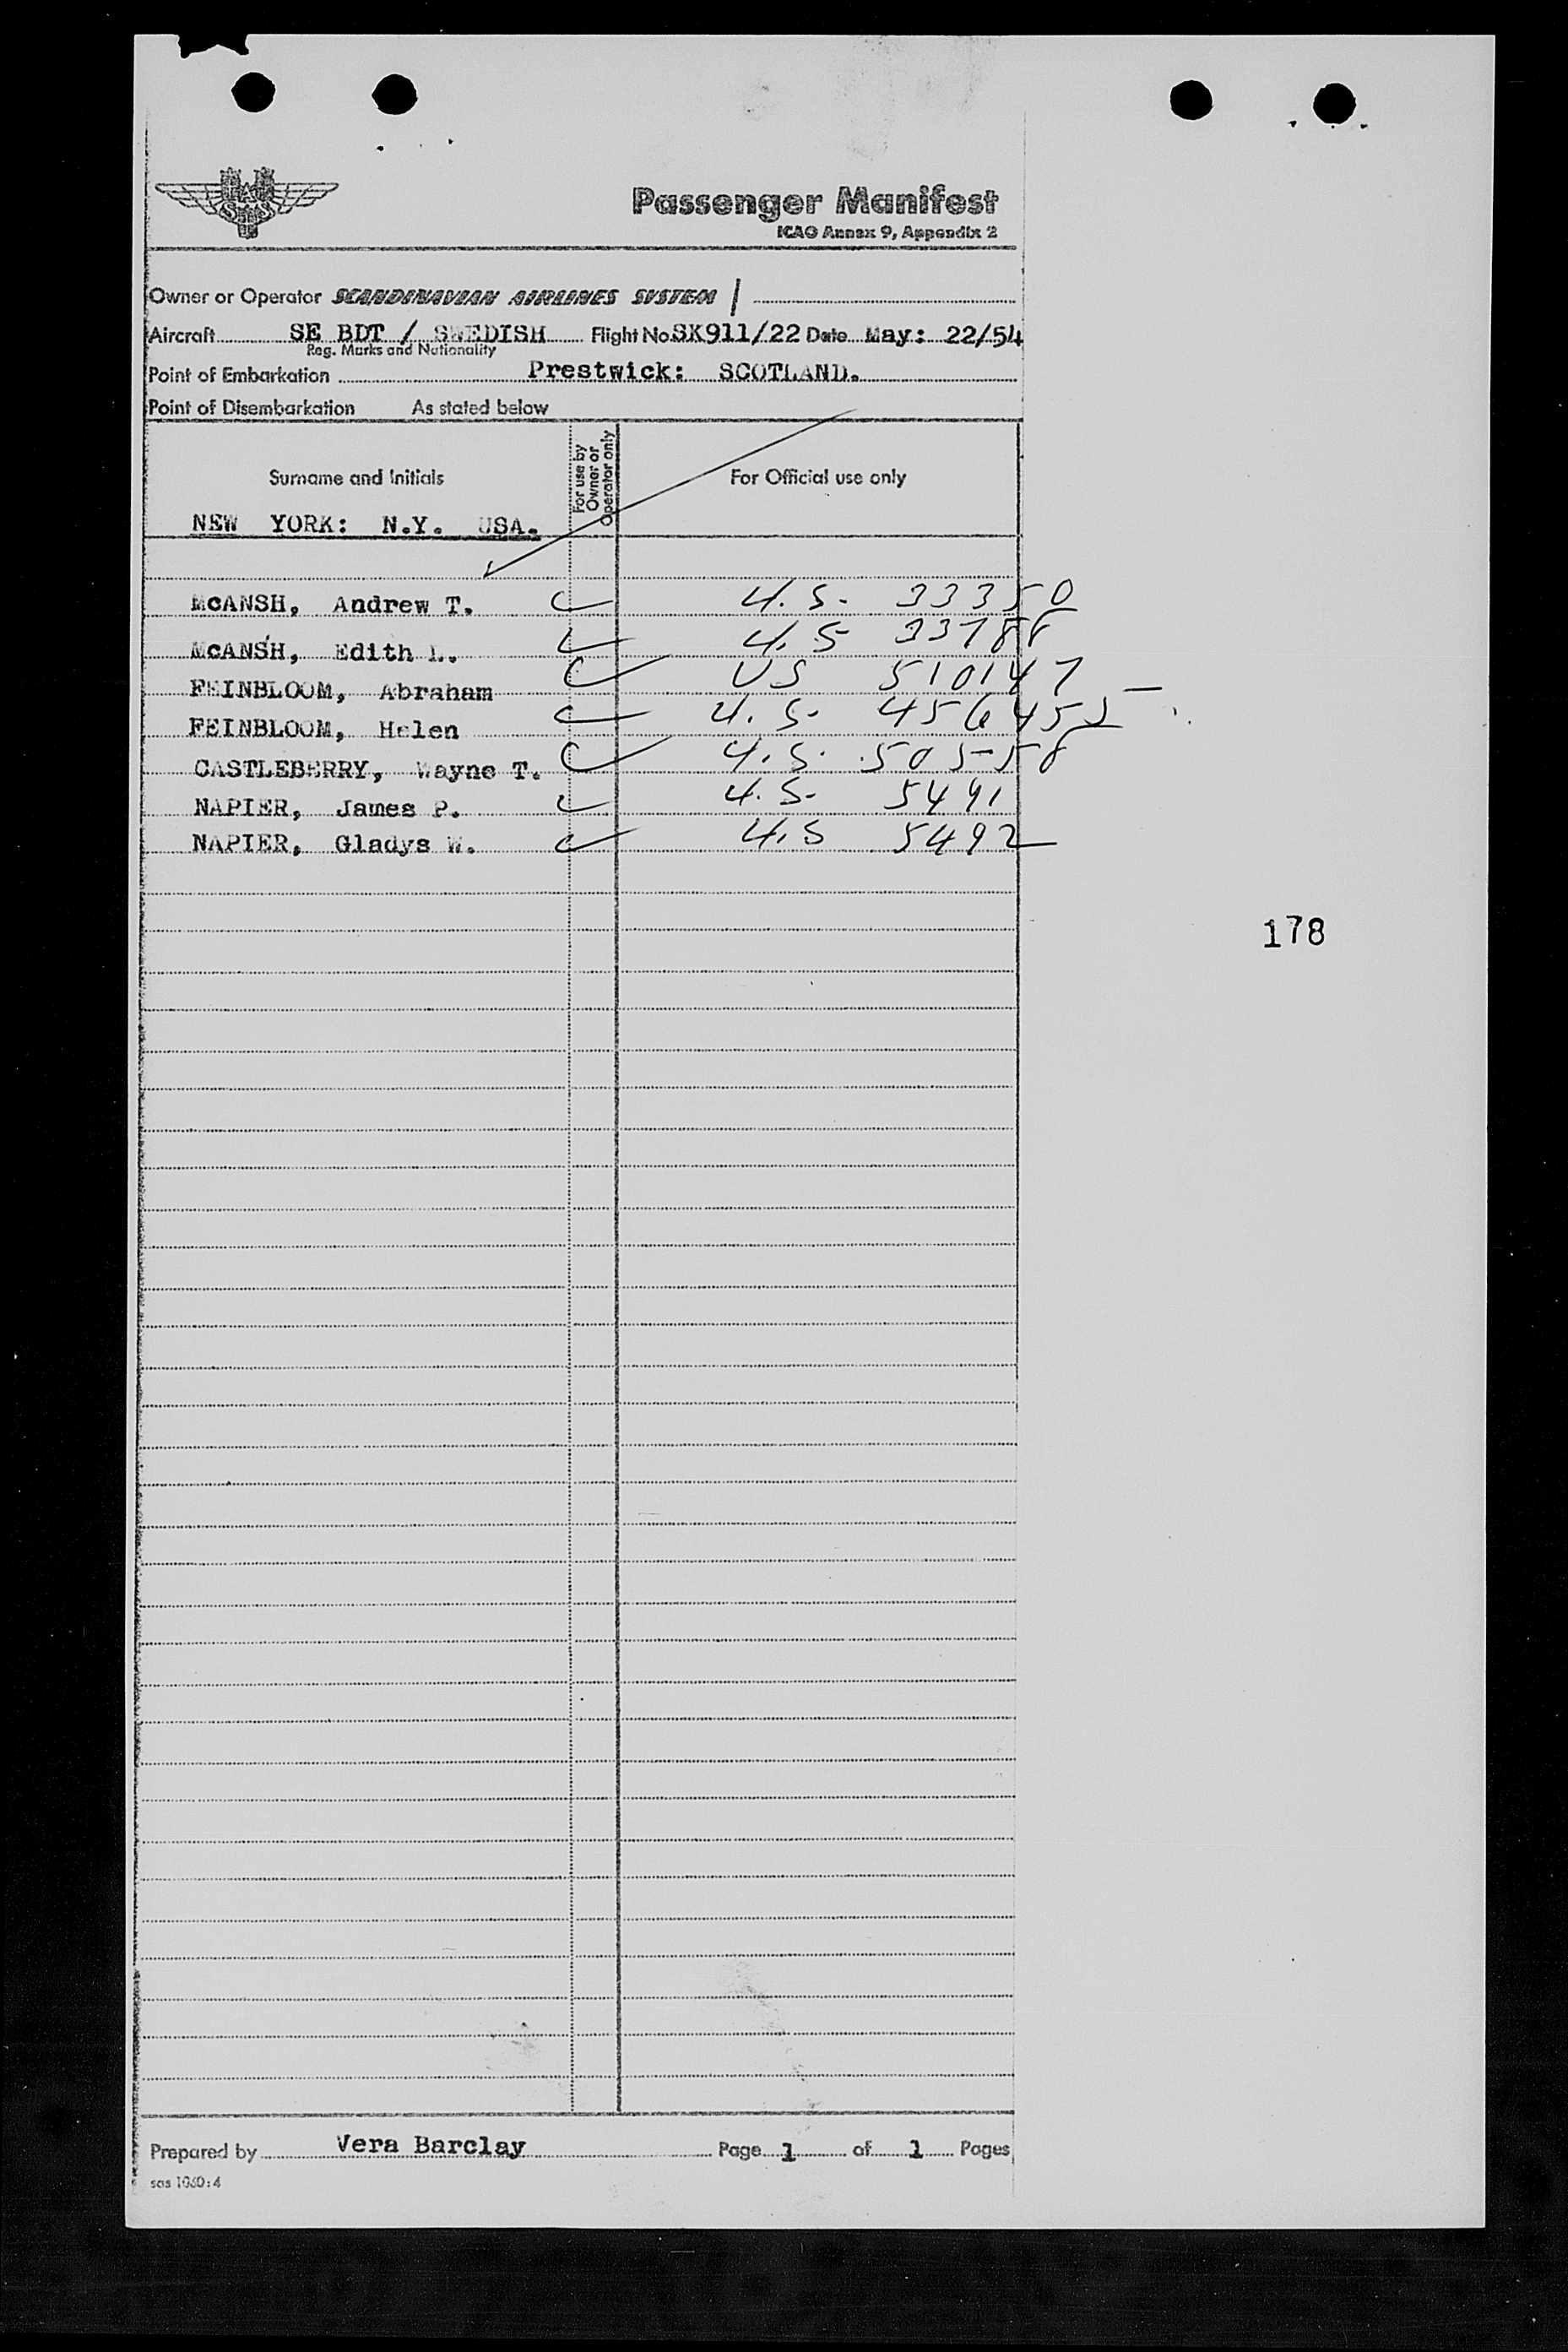 SAS
Passenger Manifest
ICAO Annex 9, Appendix 2
Owner or Operator SCANDINAVIAN AIRLINES SYSTEM /
Aircraft SE BDT / SWEDISH Flight No SK911/22 Date May: 22/54
Reg. Marks and Nationality
Point of Embarkation Prestwick: SCOTLAND.
Point of Disembarkation As stated below
Surname and Initials For use by Owner or Operator only For Official use only
NEW YORK: N.Y. USA.
McANSH, Andrew T. U.S. 33350
McANSH, Edith L. U.S
FEINBLOOM, Abraham US 510147
FEINBLOOM, Helen U.S. 456452
CASTLEBERRY, Wayne T. U.S. 50558
NAPIER, James P. U.S. 5491
NAPIER, Gladys W. U.S 5492
178
Prepared by Vera Barclay Page 1 of 1 Pages
sas 1060:4